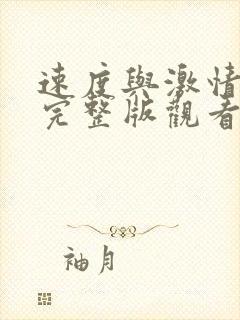 速度與激情
完整版觀看
袖月